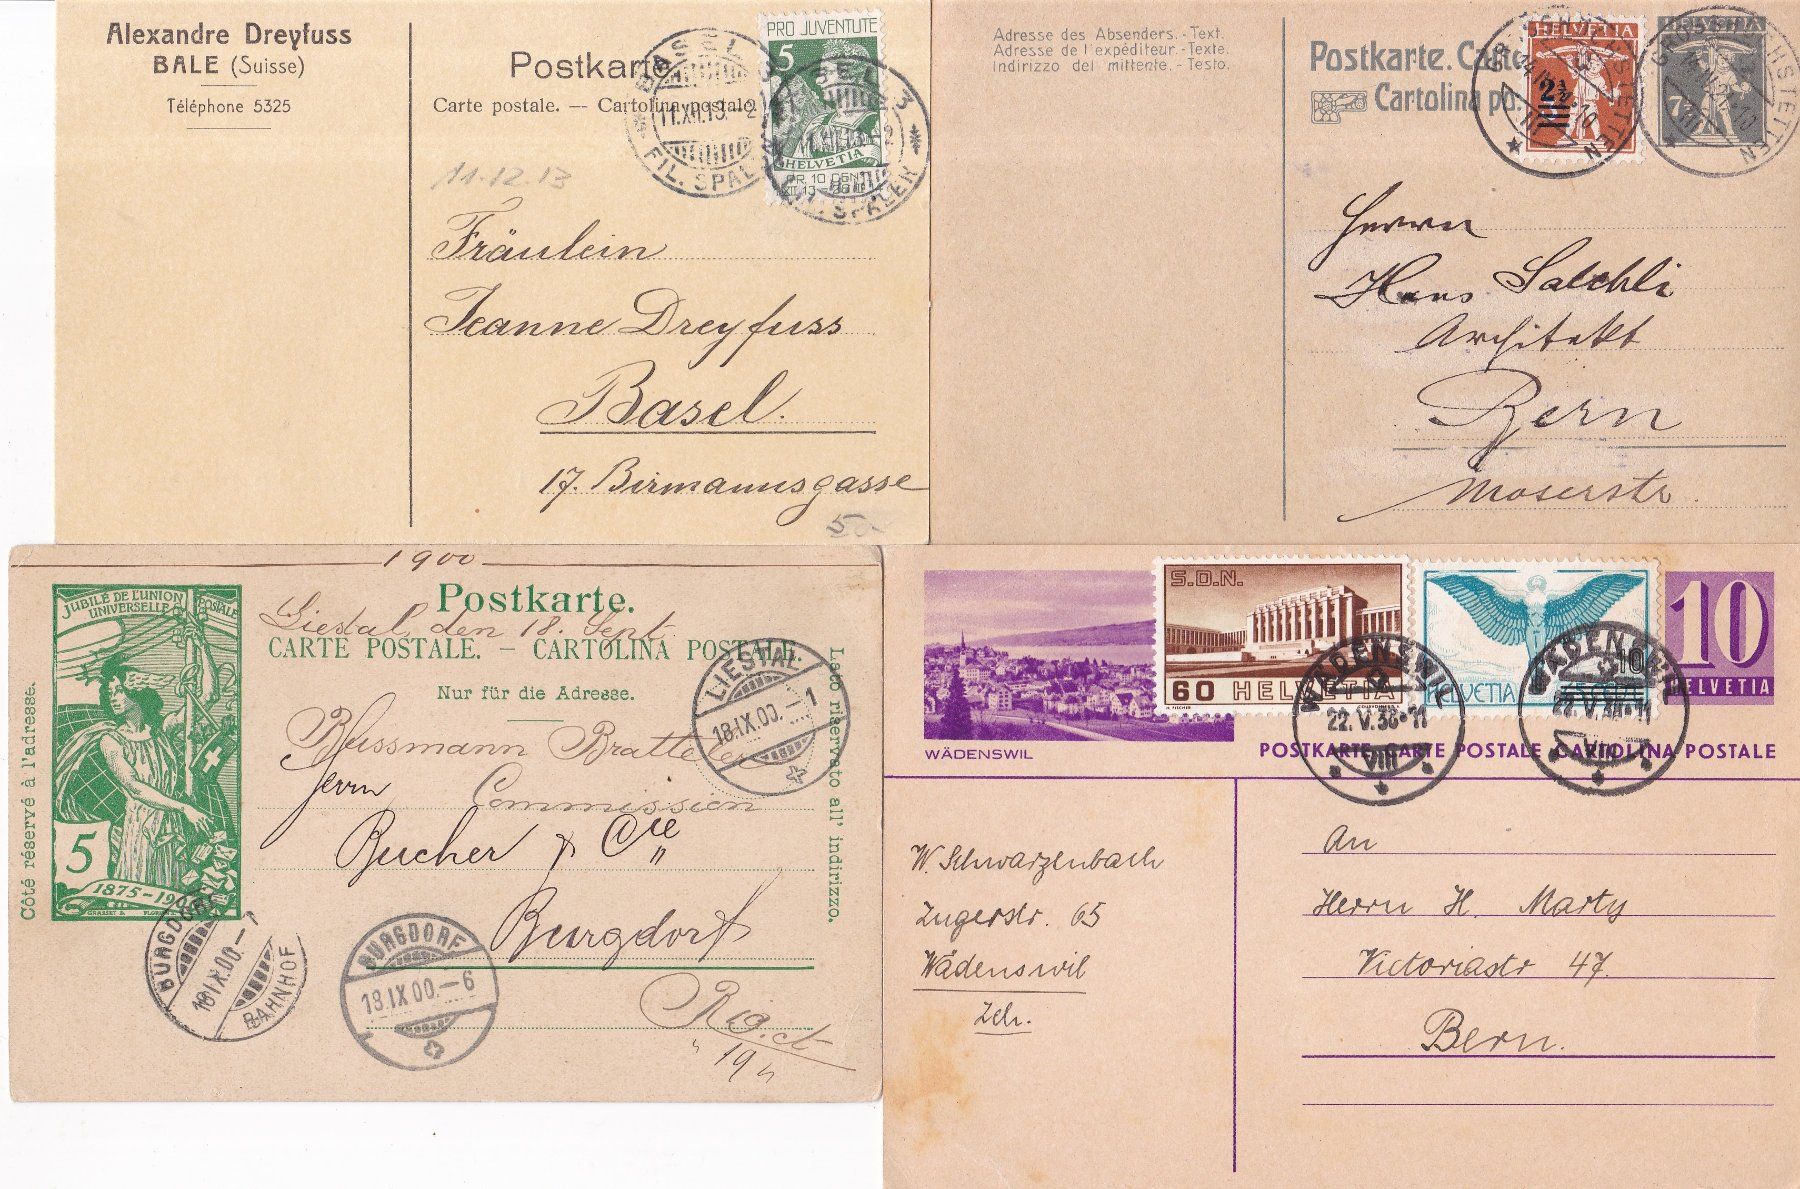 Alexandre Dreyfuss
BALE (Suisse)
Téléphone 5325
Postkarte
Carte postale. — Cartolina postale
PRO JUVENTUTE
5
HELVETIA
BASEL
11.XII.13.
FIL. SPALEN
11.12.13
Fräulein
Jeanne Dreyfuss
Basel.
17. Birmannsgasse
50
Adresse des Absenders.-Text.
Adresse de l'expéditeur.-Texte.
Indirizzo del mittente.-Testo.
Postkarte. Carte
Cartolina po
HELVETIA
2½
HELVETIA
7½
GROSSHÖCHSTETTEN
Herrn
Hans Salchli
Architekt
Bern
Moserstr.
1900
Postkarte.
Liestal, den 18. Sept.
CARTE POSTALE. - CARTOLINA POSTALE.
Nur für die Adresse.
Côté réservé à l'adresse.
Lato riservato all' indirizzo.
JUBILÉ DE L'UNION
UNIVERSELLE POSTALE
5
1875-19
GRASSET
LIESTAL
18.IX.00.-1
Bussmann
Herrn Commission
Bucher & Cie
Burgdorf
BURGDORF
18.IX.00.-
BAHNHOF
BURGDORF
18.IX.00.-6
19
WÄDENSWIL
S.D.N.
60 HELVETIA
HELVETIA
10
10
HELVETIA
WÄDENSWIL
22.V.38-11
VIII
WÄDENSWIL
22.V.38-11
VIII
POSTKARTE CARTE POSTALE CARTOLINA POSTALE
W. Schwarzenbach
Zugerstr. 65
Wädenswil
Zch.
An
Herrn H. Marty
Victoriastr 47.
Bern.